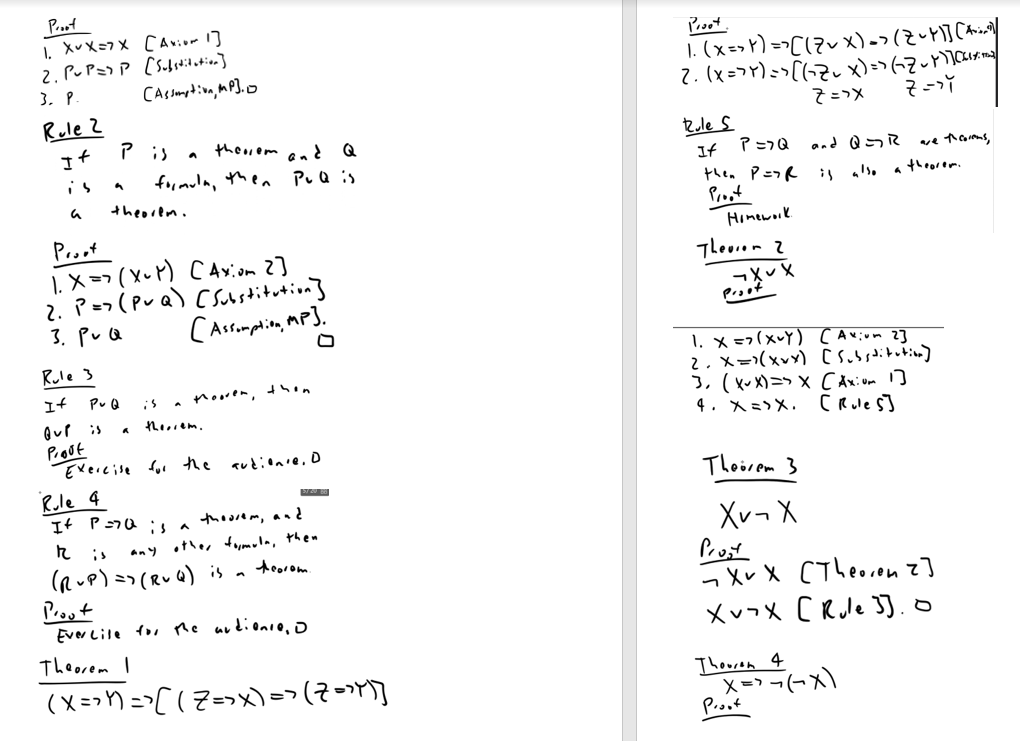 Proof
1. X∨X=>X [Axiom 1]
2. P∨P=>P [Substitution]
3. P. [Assumption, MP]. □
Rule 2
If P is a theorem and Q
is a formula, then P∨Q is
a theorem.
Proof
1. X=>(X∨Y) [Axiom 2]
2. P=>(P∨Q) [Substitution]
3. P∨Q [Assumption, MP].
□
Rule 3
If P∨Q is a theorem, then
Q∨P is a theorem.
Proof
Exercise for the audience. □
Rule 4
If P=>Q is a theorem, and
R is any other formula, then
(R∨P)=>(R∨Q) is a theorem.
Proof
Exercise for the audience. □
Theorem 1
(X=>Y)=>[(Z=>X)=>(Z=>Y)]
Proof.
1. (X=>Y)=>[(Z∨X)=>(Z∨Y)] [Axiom 4]
2. (X=>Y)=>[(¬Z∨X)=>(¬Z∨Y)]
Z=>X Z=>Y
Rule 5
If P=>Q and Q=>R are theorems,
then P=>R is also a theorem.
Proof
Homework.
Theorem 2
¬X∨X
Proof
1. X=>(X∨Y) [Axiom 2]
2. X=>(X∨X) [Substitution]
3. (X∨X)=>X [Axiom 1]
4. X=>X. [Rule 5]
Theorem 3
X∨¬X
Proof
¬X∨X [Theorem 2]
X∨¬X [Rule 3]. □
Theorem 4
X=>¬(¬X)
Proof